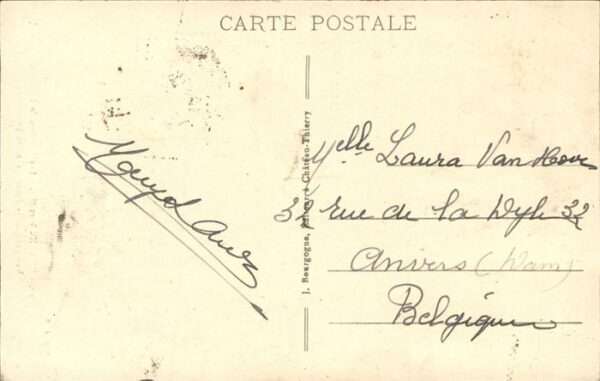 CARTE POSTALE
J. Bourgogne, Château-Thierry
Mlle Laura Van Hove
Rue de la Dyle 32
Anvers (Dam)
Belgique